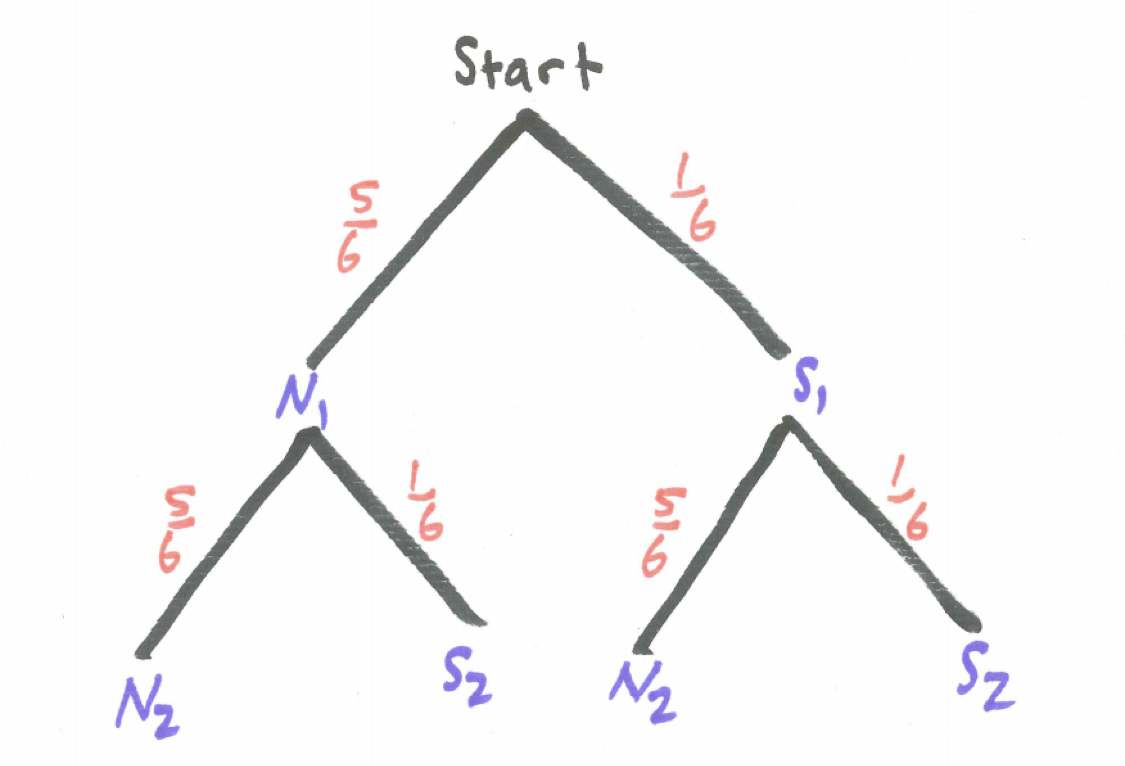 Start
5/6
1/6
N₁
S₁
5/6
1/6
5/6
1/6
N₂
S₂
N₂
S₂